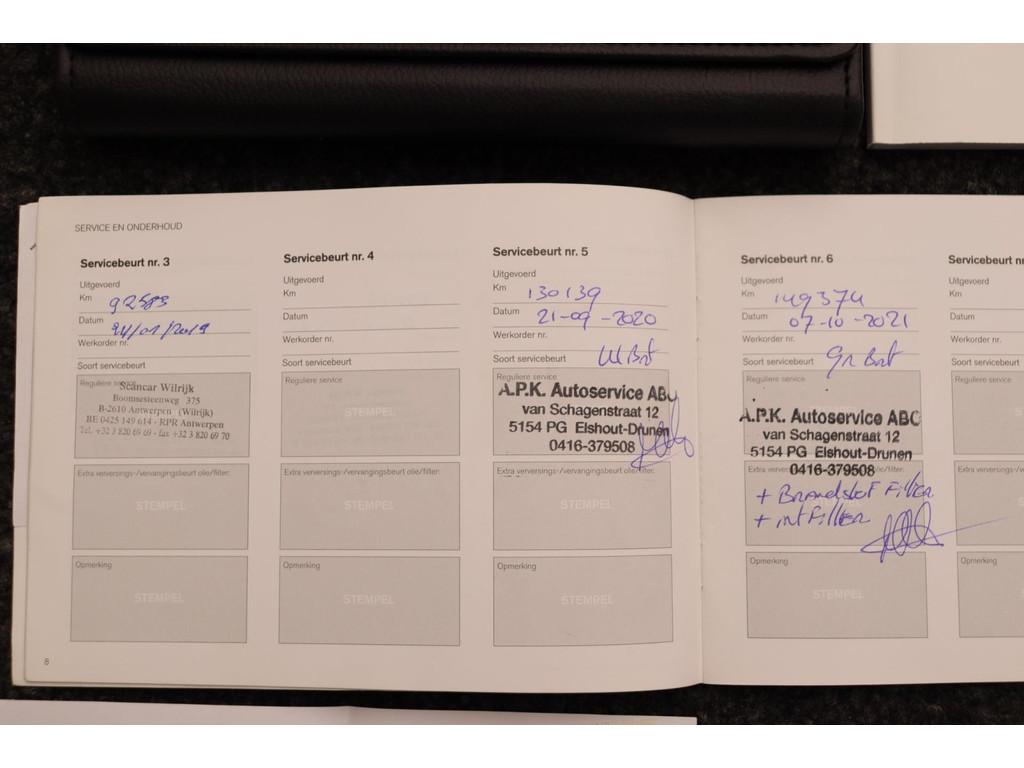 SERVICE EN ONDERHOUD
Servicebeurt nr. 3
Uitgevoerd
Km 92583
Datum 24/01/2019
Werkorder nr.
Soort servicebeurt
Reguliere service
Scancar Wilrijk
Boomsesteenweg 375
B-2610 Antwerpen (Wilrijk)
BE 0425 149 614 - RPR Antwerpen
Tel. +32 3 820 69 69 - fax +32 3 820 69 70
Extra verversings-/vervangingsbeurt olie/filter:
STEMPEL
Opmerking
STEMPEL
8
Servicebeurt nr. 4
Uitgevoerd
Km
Datum
Werkorder nr.
Soort servicebeurt
Reguliere service
STEMPEL
Extra verversings-/vervangingsbeurt olie/filter:
STEMPEL
Opmerking
STEMPEL
Servicebeurt nr. 5
Uitgevoerd
Km 130139
Datum 21-09-2020
Werkorder nr.
Soort servicebeurt
Reguliere service
A.P.K. Autoservice ABC
van Schagenstraat 12
5154 PG Elshout-Drunen
0416-379508
Extra verversings-/vervangingsbeurt olie/filter:
STEMPEL
Opmerking
STEMPEL
Servicebeurt nr. 6
Uitgevoerd
Km 149374
Datum 07-10-2021
Werkorder nr.
Soort servicebeurt Gr Brt
Reguliere service
A.P.K. Autoservice ABC
van Schagenstraat 12
5154 PG Elshout-Drunen
0416-379508
+ Brandstof Filter
+ int Filter
Opmerking
STEMPEL
Servicebeurt nr
Uitgevoerd
Km
Datum
Werkorder nr.
Soort servicebeurt
Reguliere service
Opmerking